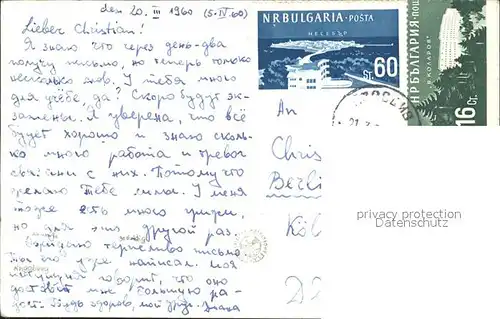 den 20. III 1960 (5.IV.60)
Lieber Christian!
Я знаю что через день-два
получу письмо, но теперь только
несколько слов. У тебя много
для учебе, да? Скоро будут эк-
замены. Я уверена, что всё
будет хорошо и знаю сколь-
ко много работа и тревог
связани с них. Потому что
желаю Тебе сила. У меня
тоже есть много
но для это другой раз.
Ожидаю терпеливо письмо
Ты его уже написал. Моя
говорит, что оно
доставит мне большую ра-
дость. Будь здоров, мой друг.
N.R.BULGARIA·POŠTA
НЕСЕБЪР
60
St.
НР БЪЛГАРИЯ·ПОЩ
В.КОЛАРОВ
16 Ст.
An
Chris
Berli
Köl
privacy protecting
Datenschutz